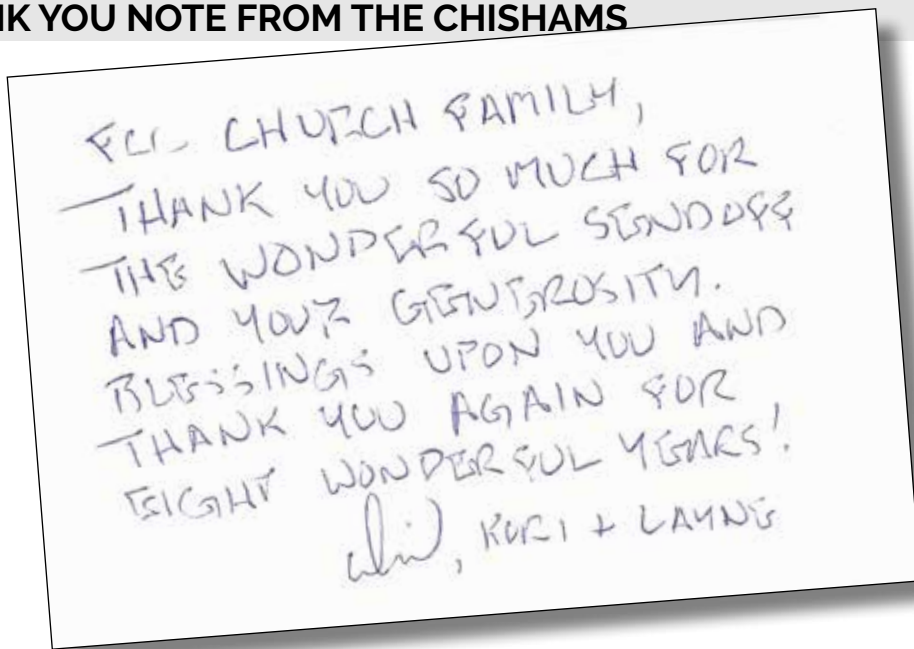 NK YOU NOTE FROM THE CHISHAMS
CHURCH FAMILY,
THANK YOU SO MUCH FOR
THE WONDERFUL SENDOFF
AND YOUR GENEROSITY.
BLESSINGS UPON YOU AND
THANK YOU AGAIN FOR
EIGHT WONDERFUL YEARS!
, KORI + LAYNE